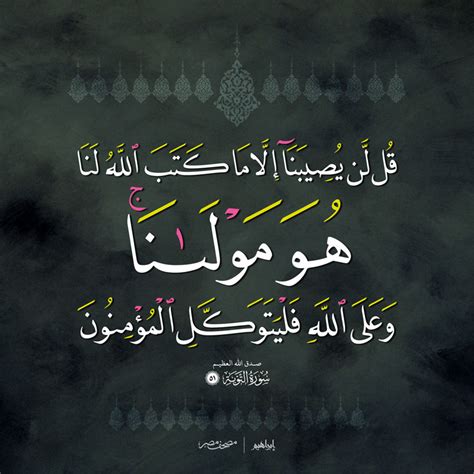 قُل لَّن يُصِيبَنَآ إِلَّا مَا كَتَبَ ٱللَّهُ لَنَا
هُوَ مَوْلَىٰنَا ۚ
وَعَلَى ٱللَّهِ فَلْيَتَوَكَّلِ ٱلْمُؤْمِنُونَ
صدق الله العظيم
سُورَةُ التَّوْبَة ٥١
إبراهيم | مصحف مصر